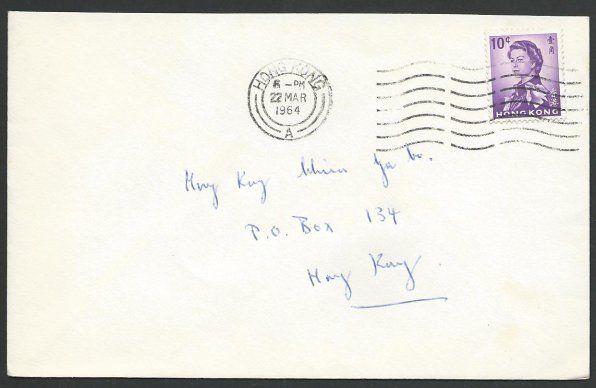 HONG KONG
6 - PM
22 MAR
1964
A
10¢ 壹角
HONG KONG
Hong Kong China Gas Co.
P.O. Box 134
Hong Kong.